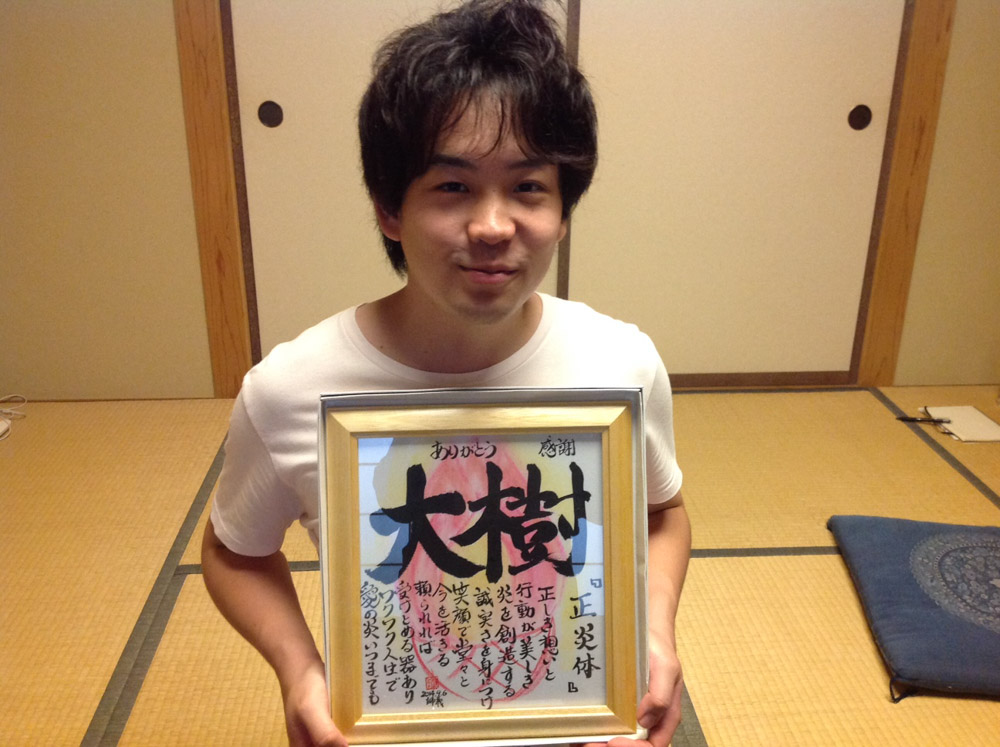 ありがとう 感謝
大樹
『正炎体』
正しき想いと
行動が美しき
炎を創造する
誠実さを身につけ
笑顔で堂々と
今を活きる
頼られれば
受けとめる器あり
ワクワク人生で
愛の炎いつまでも
2014.9.6